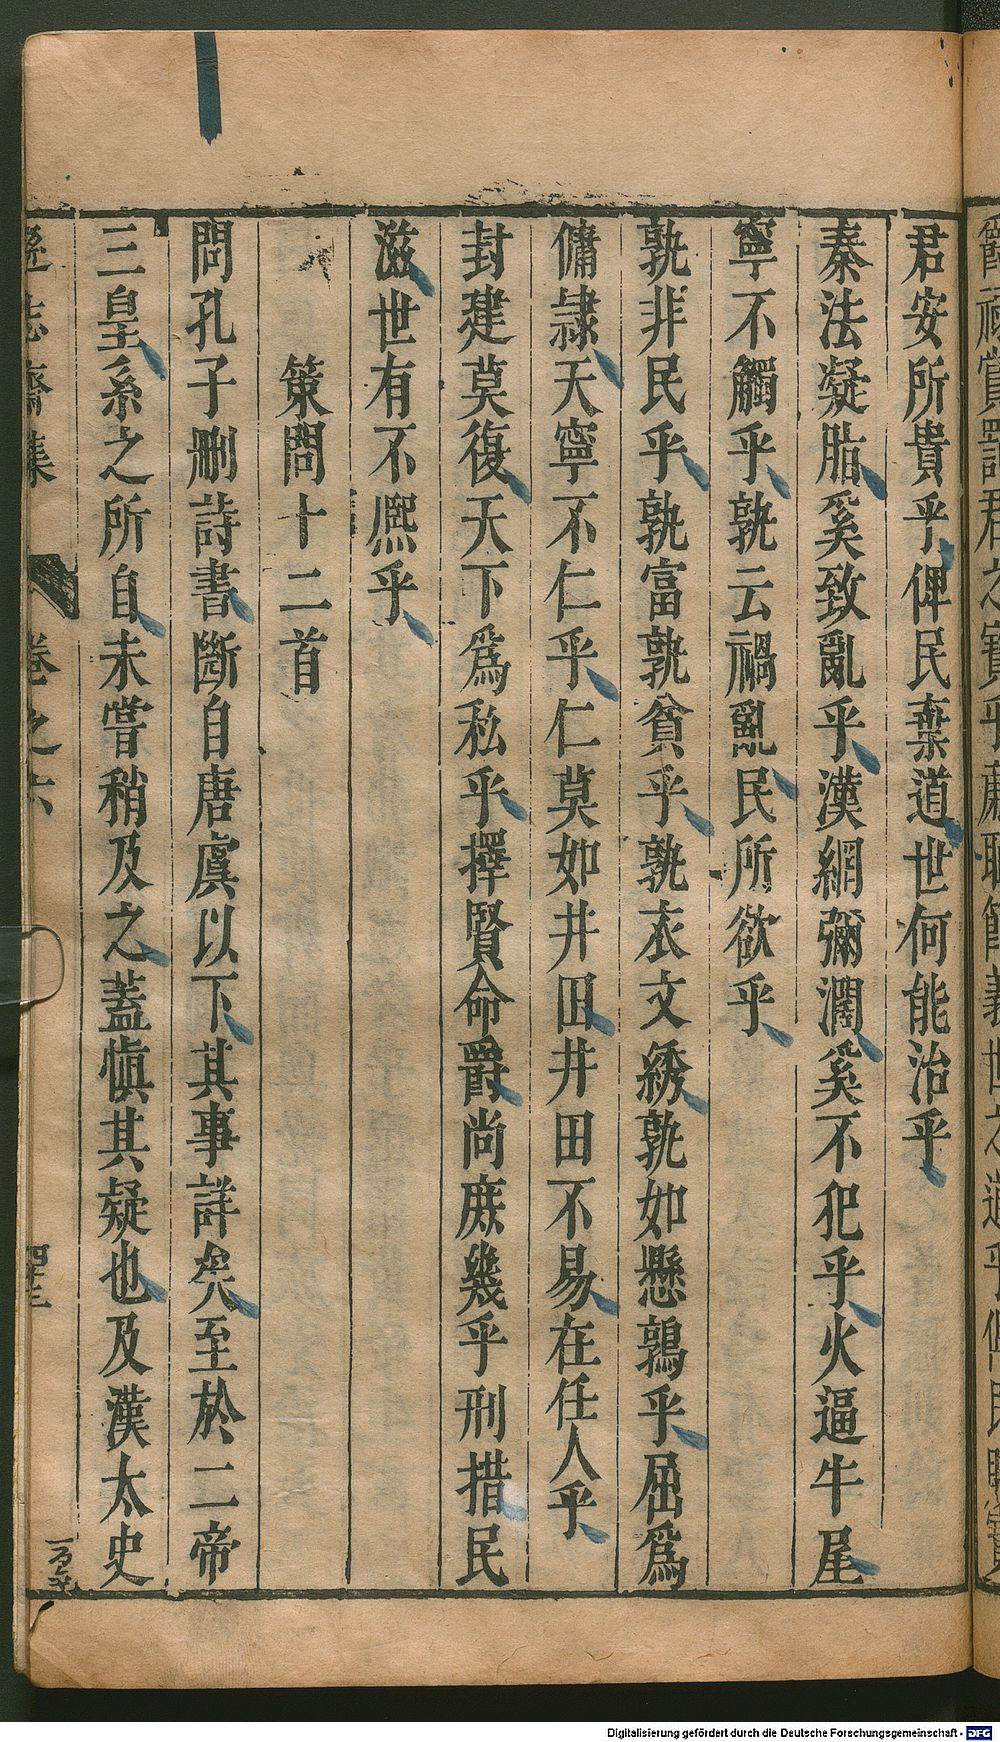 君安所貴乎俾民棄道世何能治乎
秦法凝脂奚致亂乎漢網彌濶奚不犯乎火逼牛尾
寧不觸乎孰云禍亂民所欲乎
孰非民乎孰富孰貧乎孰衣文綉孰如懸鶉乎屈爲
傭隷天寧不仁乎仁莫如井田井田不易在任人乎
封建莫復天下爲私乎擇賢命爵尚庶幾乎刑措民
滋世有不熈乎
策問十二首
問孔子刪詩書斷自唐虞以下其事詳矣至於二帝
三皇系之所自未嘗稍及之蓋愼其疑也及漢太史
遜志齋集 卷之六 四十三
Digitalisierung gefördert durch die Deutsche Forschungsgemeinschaft - DFG